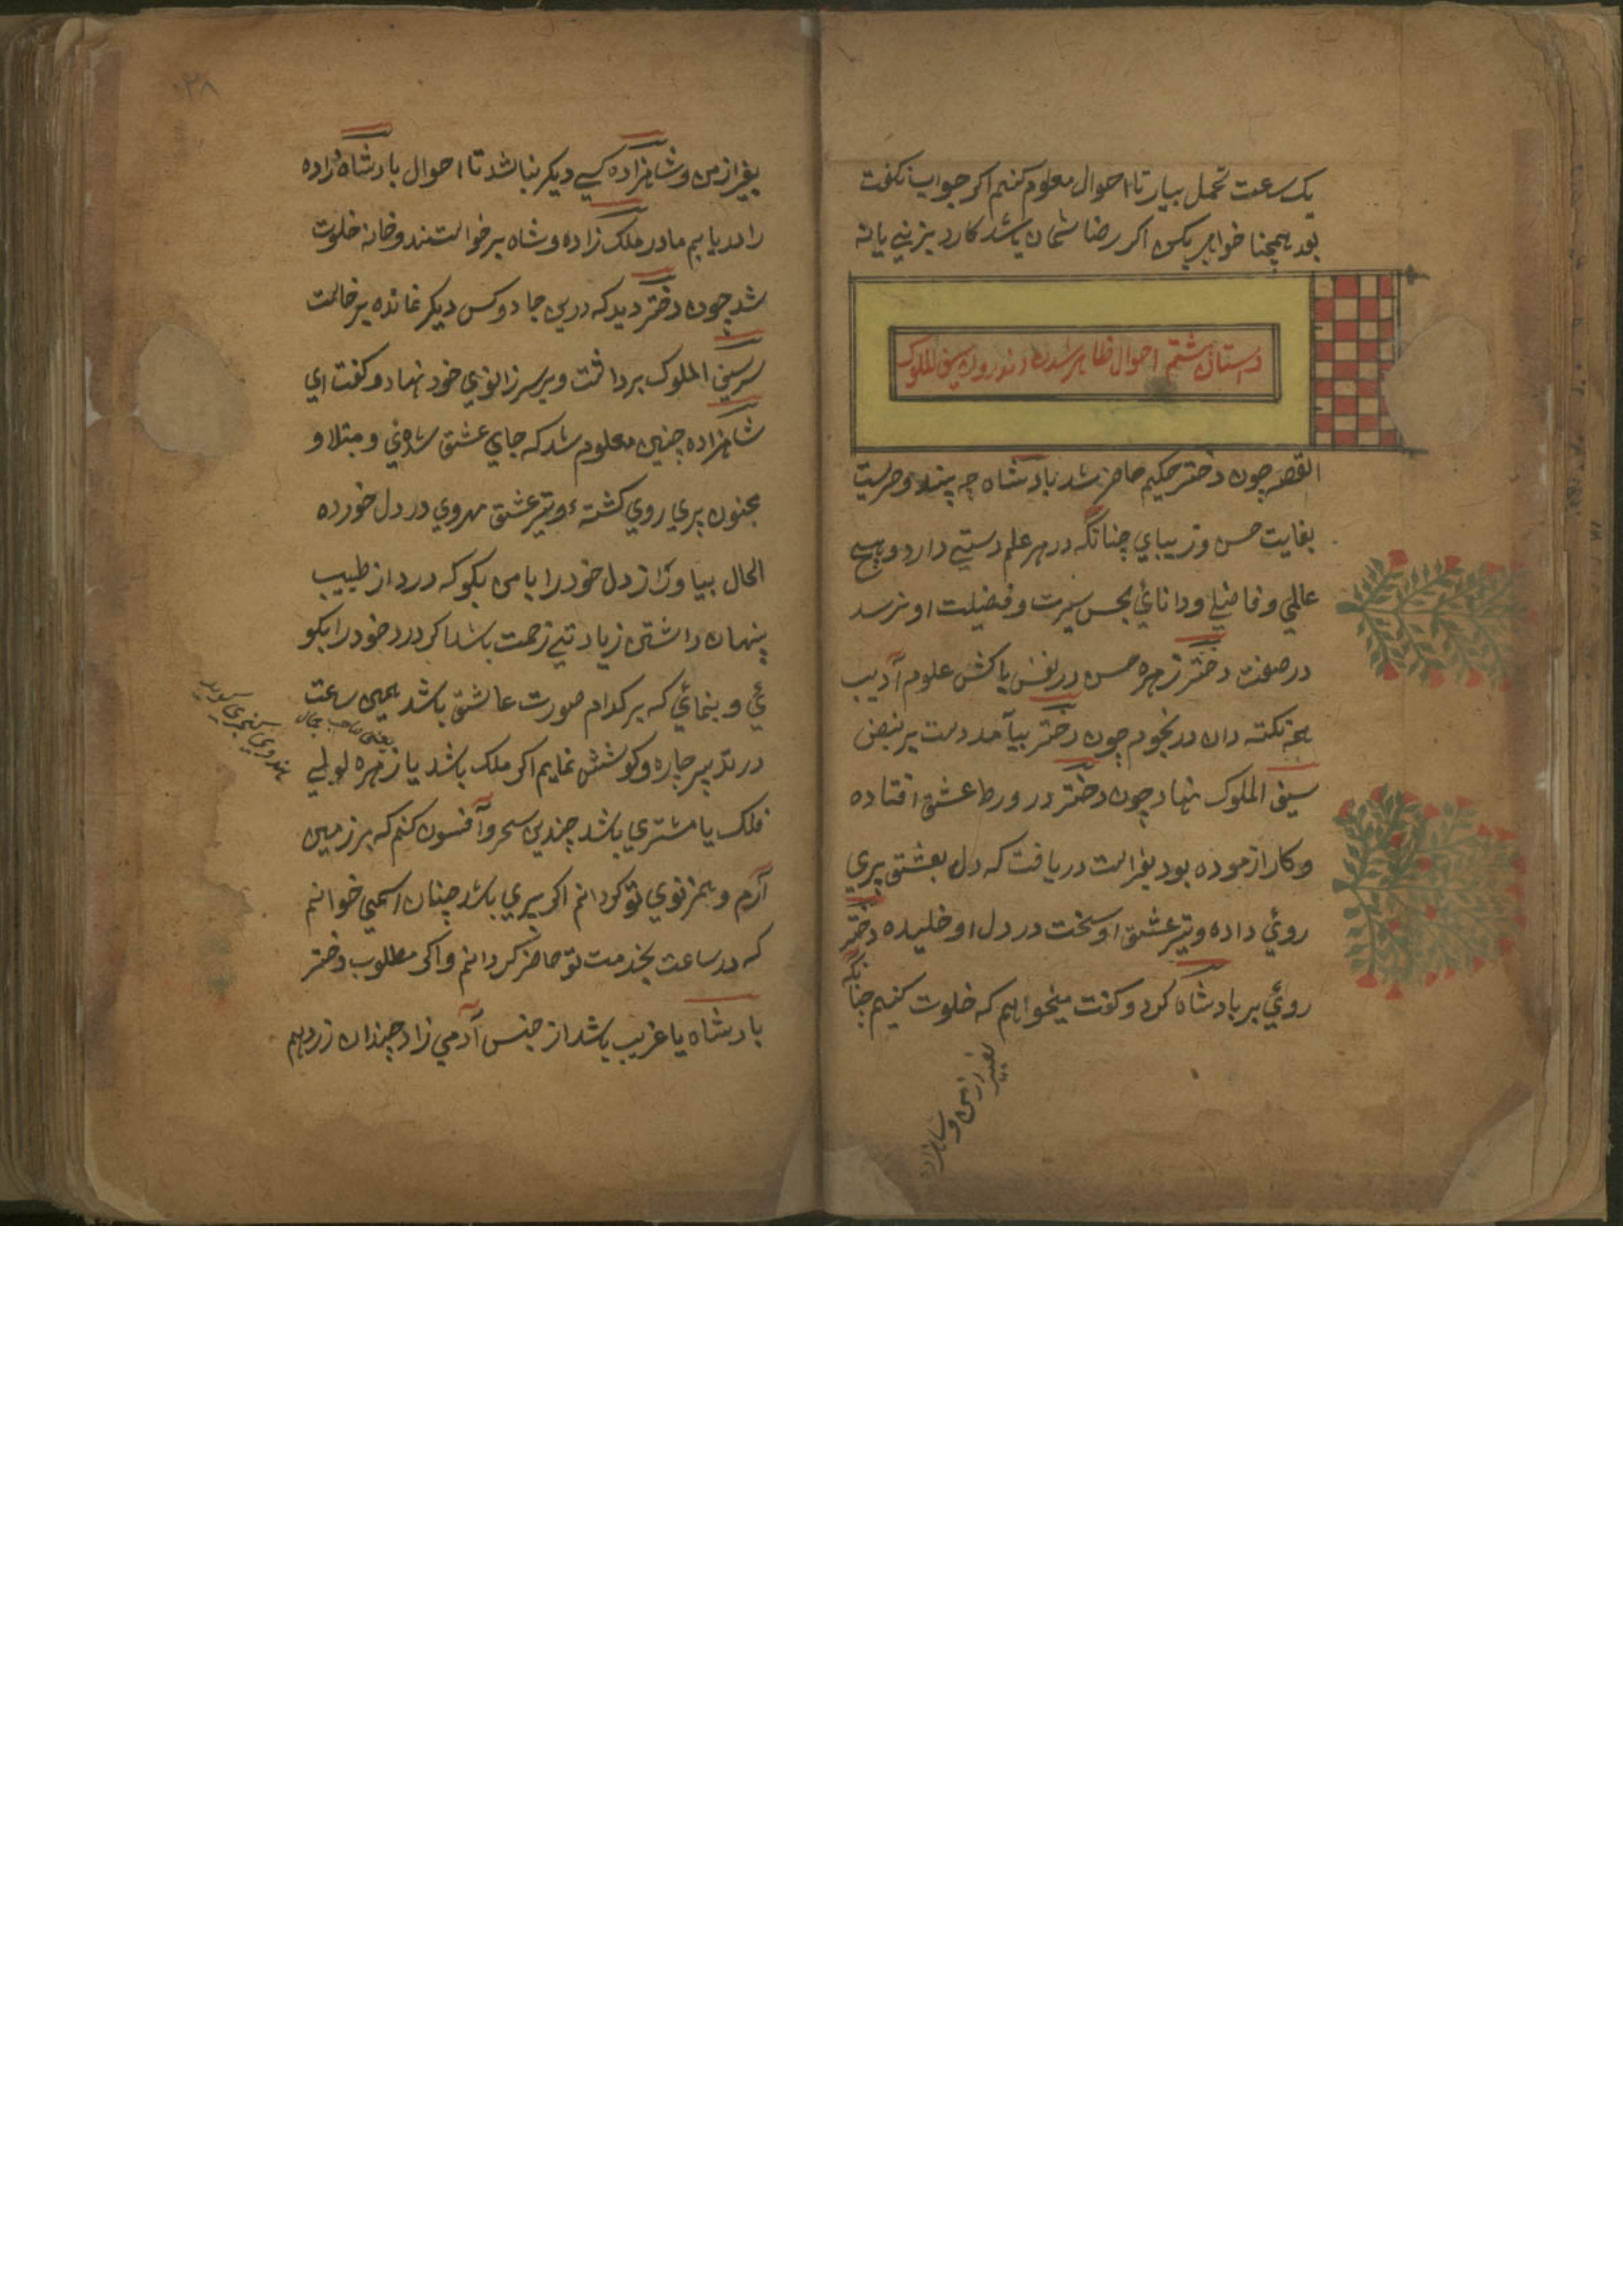 یک سعت تحمل بیار تا احوال معلوم کنیم اکر جواب نکفت
بود همچنا خواهر بکس اکر رضا شمان باشد کارد بزنیی یا نه
داستان هشتم احوال ظاهر شدن اندرون سیف الملوک
القصه چون دختر حکیم حاضر شد بادشاه چه بیند دختریست
بغایت حسن و زیبای چنانکه در هر علم دستی دارد و هیچ
عالمی و فاضلی و دانائی بحسن سیرت و فضیلت او نرسد
در صفت دختر زهره حسن در نفس پاکش علوم آدیب
همه نکته دان در نجوم چون دختر بیآمد دست بر نبض
سیف الملوک نهاد چون دختر در ورط عشق افتاده
و کار ازموده بود بفراست دریافت که دل بعشق پری
روئی داده و تیر عشق او سخت در دل او خلیده دختر
روئی بر بادشاه کرد و کفت میخواهم که خلوت کنیم چنانکه
بغیر از من و شاهزاده
۰۲۸
بغیر از من و شاهزاده کسی دیکر نباشد تا احوال بادشاه زاده
را دریابیم مادر ملک زاده و شاه برخواستند و خانه خلوت
شد چون دختر دید که درین جا دو کس دیکر نمانده برخاست
سر سیف الملوک برداشت و بر سر زانوی خود نهاد و کفت ای
شاهزاده چنین معلوم شد که جای عشق شدنی و مبتلا و
مجنون پری روی کشته ء و تیر عشق مهروی در دل خورده
الحال بیا و راز دل خود را با من بکو که درد از طبیب
پنهان داشتن زیادتی زحمت باشد اکر درد خود را بکو
ئی و بنمائی که بر کدام صورت عاشق باشد همین سعت
یعنی صاحب جمال
هندوی کنچری کویند
در تدبیر چاره و کوشش نمایم اکر ملک باشد یا زهره لولی
فلک یا مشتری باشد چندین سحر و آفسون کنم که بر زمین
آرم و همزنوی تو کردانم اکر پری باشد چنان اسمی خوانم
که در ساعت بخدمت تو حاضر کردانم و اکر مطلوب دختر
بادشاه یا غریب باشد از جنس آدمی زاد چندان زر دهم